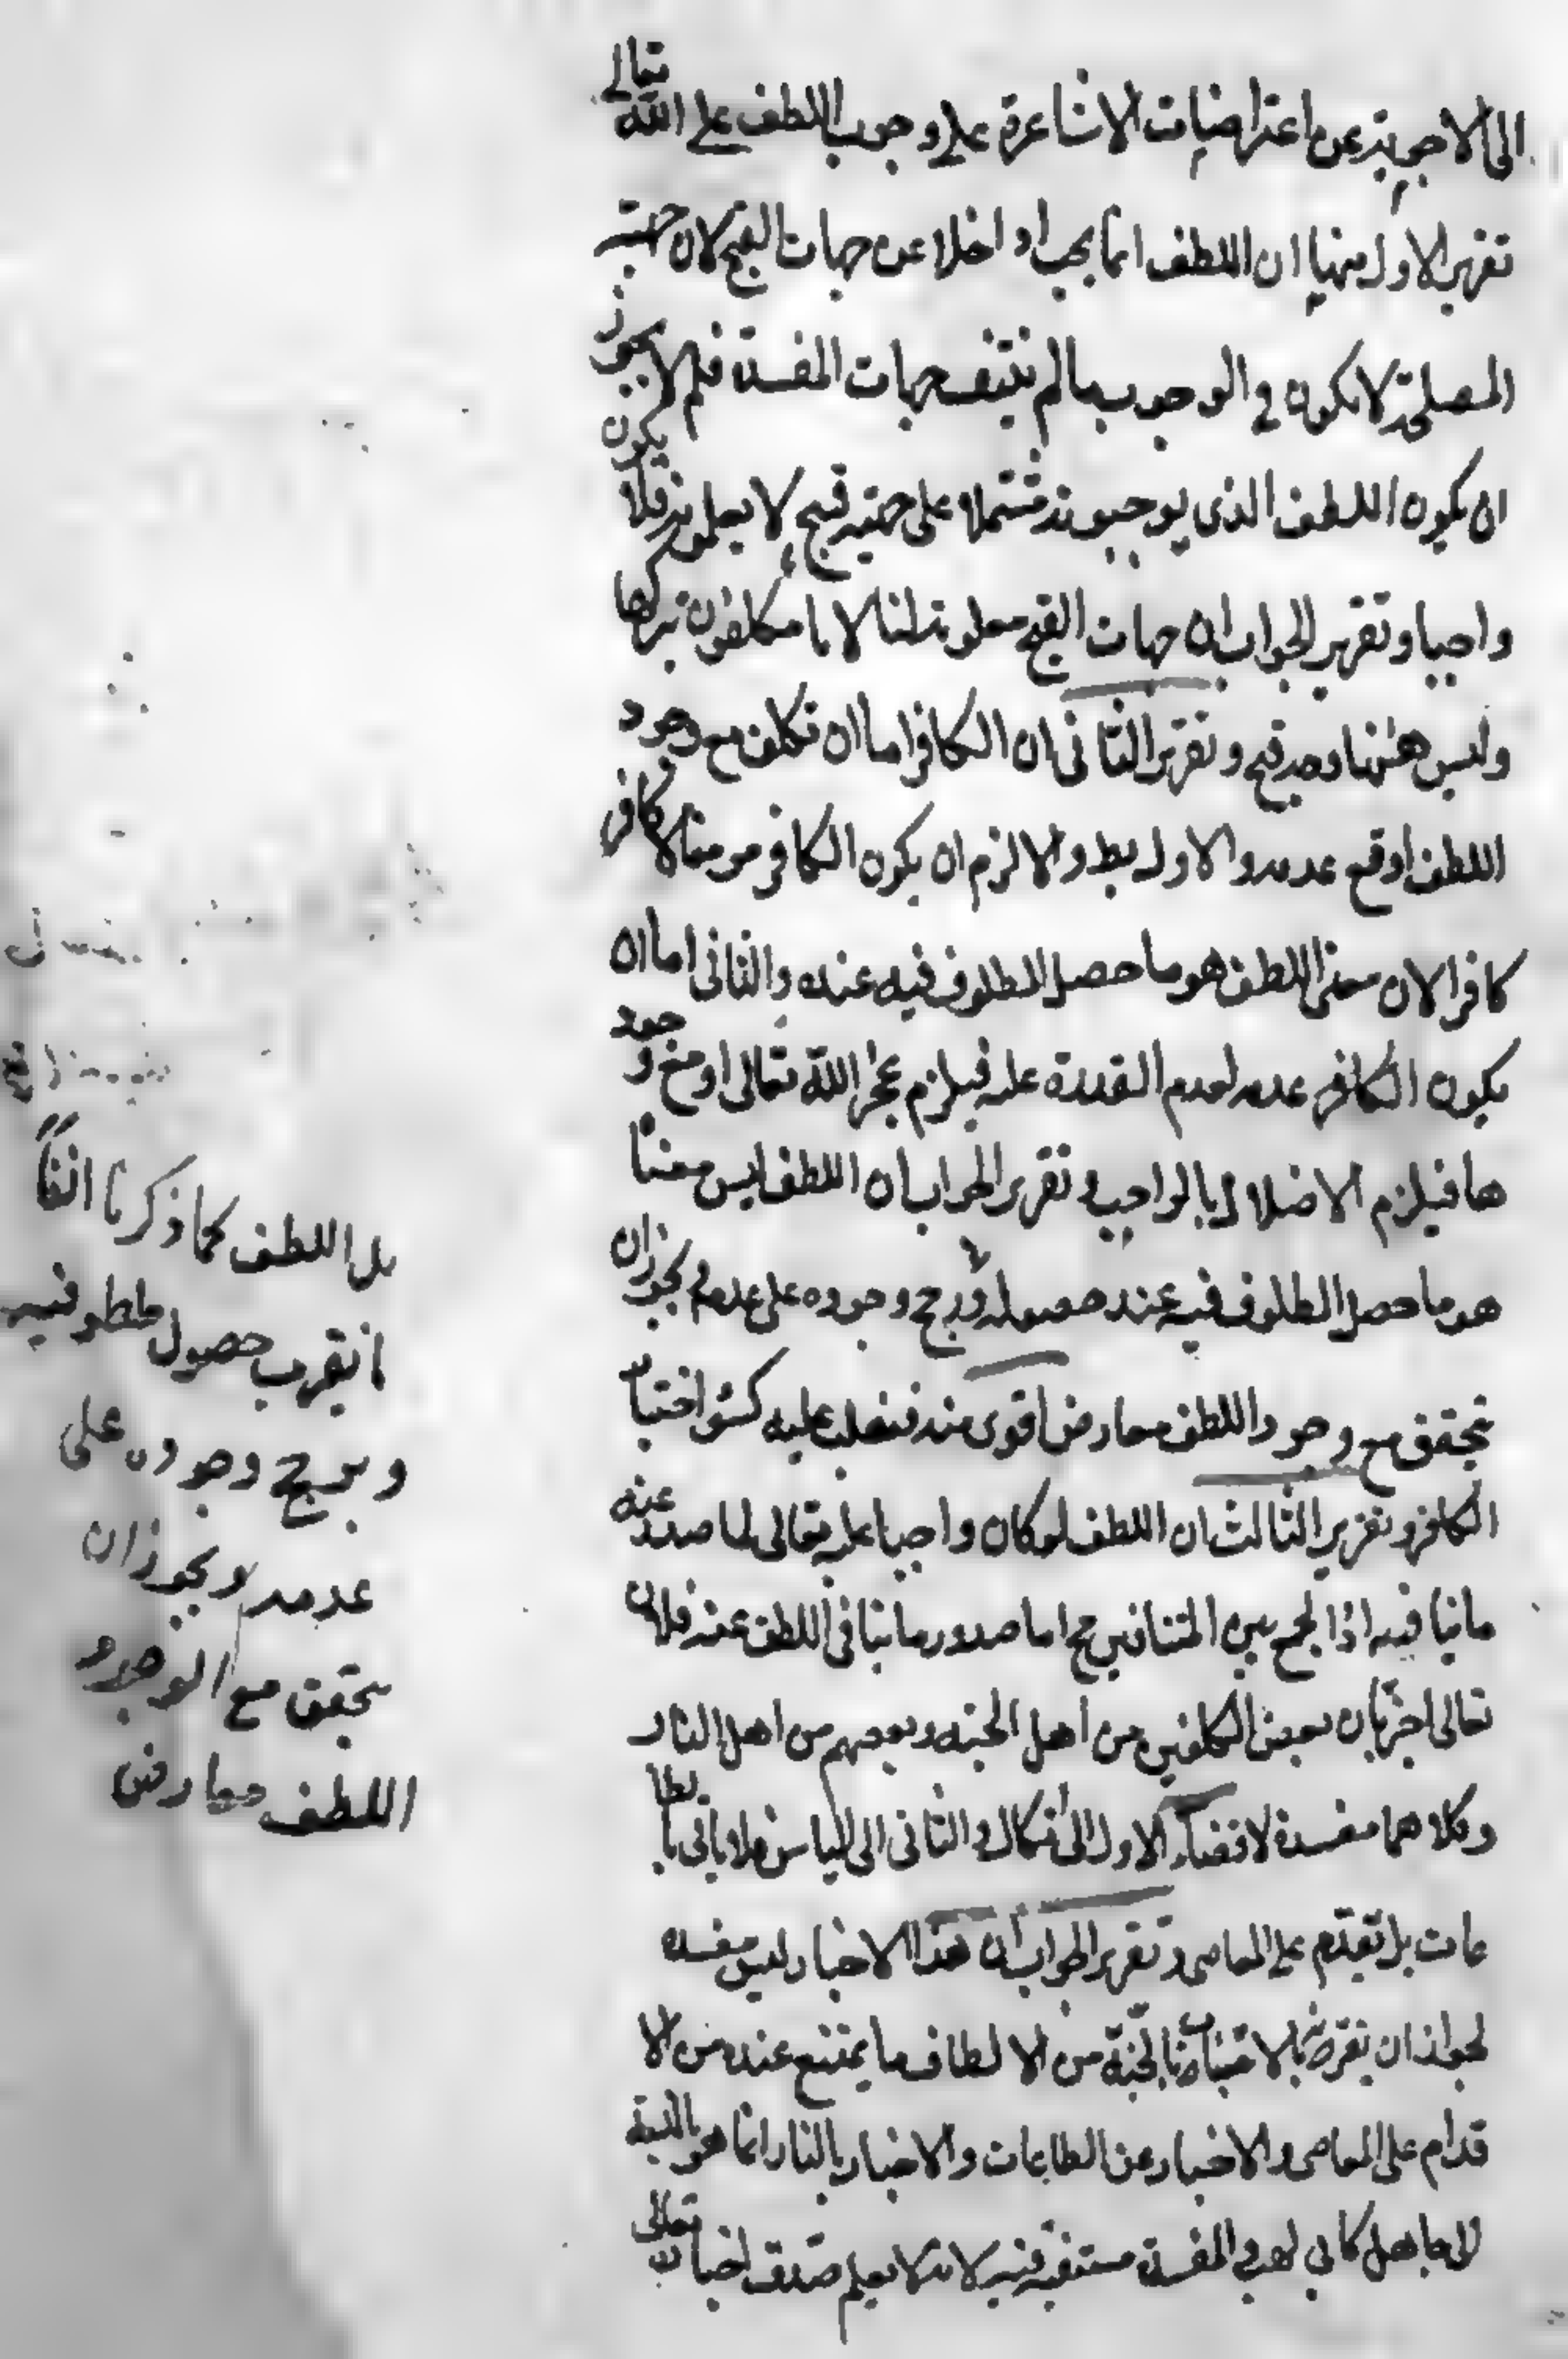 الى الاجوبة عن اعتراضات الاشاعرة على وجوب اللطف على الله تعالى
تقرير الاول منها ان اللطف انما يجب اذا خلا عن جهات القبح لان جهة
المصلحة لا تكون في الوجوب ما لم ينتف جهات المفسدة فلم لا يجوز
ان يكون اللطف الذى يوجبونه مشتملا على جهة قبح لا يعلمونه فلا يكون
واجبا وتقرير الجواب ان جهات القبح معلومة لنا لانا مكلفون بتركها
وليس ههنا وجه قبح وتقرير الثانى ان الكافر اما ان يكلف مع وجود
اللطف او مع عدمه والاول بط والا لزم ان يكون الكافر مومنا لا كافر
كافرا لان معنى اللطف هو ما حصل الملطوف فيه عنده والثانى اما ان
يكون الكافر عدمه لعدم القدرة عليه فيلزم عجز الله تعالى او مع وجود
ها فيلزم الاخلال بالواجب وتقرير الجواب ان اللطف ليس معناه
هو ما حصل الملطوف فيه عند حصوله ويرجح وجوده على عدمه ويجوز ان
يتحقق مع وجود اللطف معارض اقوى منه فيغلب عليه كسوء اختيار
الكافر وتقرير الثالث ان اللطف لو كان واجبا عليه تعالى لما صدر عنه
ما ينافيه اذ الجمع بين المتنافيين مح اما صدور ما ينافى اللطف عنه فلان
تعالى اخبر بان بعض المكلفين من اهل الجنة وبعضهم من اهل النار
وكلاهما مفسدة لافضاء الاول الى اتكال والثانى الى الياس فلا ياتى بالطا
عات بل يقدم على المعاصى وتقرير الجواب ان هذا الاخبار ليس مفسدة
لجواز ان يقترن بالاخبار بالجنة من الالطاف ما يمتنع عنده من الا
قدام على المعاصى والاخبار عن الطاعات والاخبار بالنار انما هو بالنسبة
الى جاهل كابى لهب والمفسدة منتفية فيه لانه لا يعلم صدق اخباره تعالى
بل اللطف كما ذكرنا انفاً
ما يقرب حصول ملطو فيه
ويرجح وجوده على
عدمه ويجوز ان
يتحقق مع الوجود
اللطف معارض